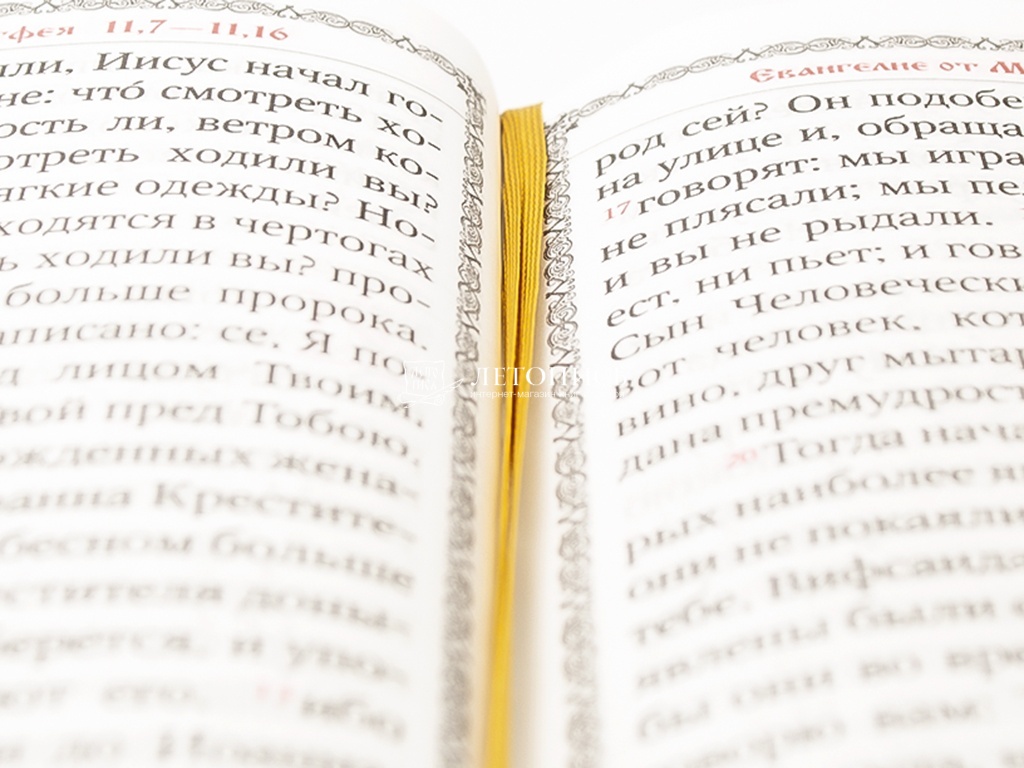 фея 11,7—11,16
ли, Иисус начал го-
не: что́ смотреть хо-
ость ли, ветром ко-
отреть ходили вы?
ягкие одежды? Но-
ходятся в чертогах
ь ходили вы? про-
больше пророка.
аписано: се, Я по
д лицом Твоим,
вой пред Тобою.
ожденных жена-
анна Крестите-
бесном больше
стителя доны-
берется, и упо-
ют его,
ибо
Евангелие от М
род сей? Он подобе
на улице и, обраща
17 говорят: мы игра
не плясали; мы пе
и вы не рыдали.
ест, ни пьет; и гов
Сын Человечески
вот человек, кот
вино, друг мытар
дана премудрост
20 Тогда нача
рых наиболее я
они не покаяли
тебе, Вифсаида
явлены были
бы они во вр
ЛЕТОПИ